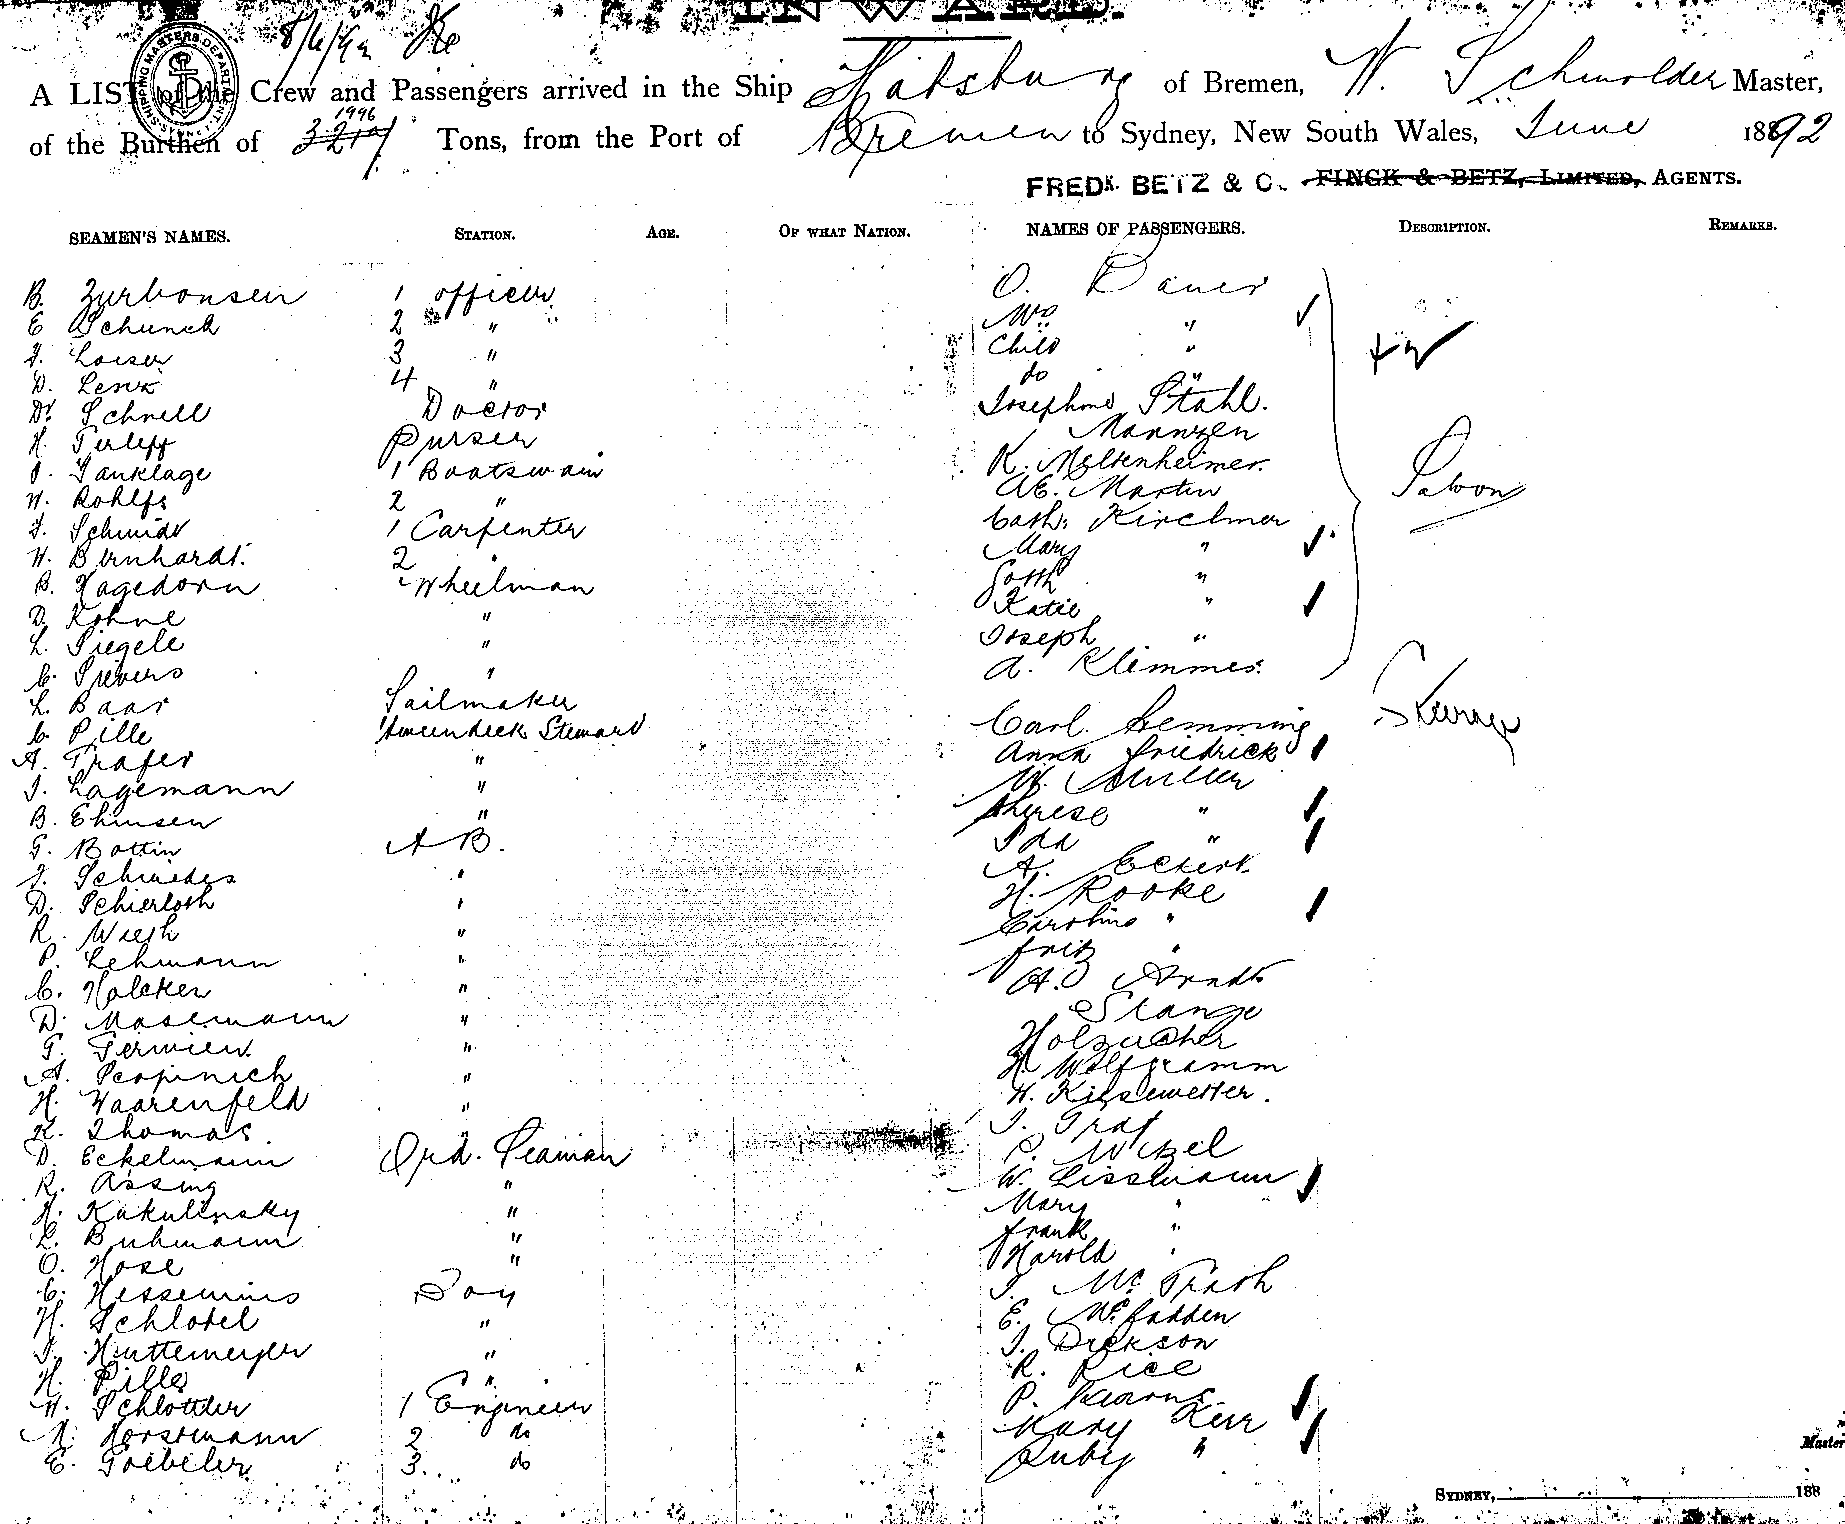 INWARD.
SHIPPING MASTERS DEPARTMENT
8/6/92
A LIST of the Crew and Passengers arrived in the Ship Habsburg of Bremen, W. Schmolder Master,
1996
of the Burthen of Tons, from the Port of Bremen to Sydney, New South Wales, June 1892
FREDK. BETZ & C. FINCK & BETZ, LIMITED, AGENTS.
SEAMEN'S NAMES. STATION. AGE. OF WHAT NATION. NAMES OF PASSENGERS. DESCRIPTION. REMARKS.
B. Zurbonsen 1 officer O. Bauer
E Schunck 2 " Mrs "
Loeser 3 " Child "
D. Lenz 4 " do "
Dr Schnell Doctor Josephine Stahl.
H. Terleff Purser Mannzen
Tanklage 1 Boatswain K. Meltenheimer. Saloon
H. Rohlfs 2 " AE. Martin
Schmidt 1 Carpenter Cath: Kirchner
H. Bernhardt. 2 " Mary "
B. Hagedorn Wheelman Gotth "
D. Kohne " Katie "
L. Siegele " Joseph "
C. Sievers " A. Klimmer.
L. Baar Sailmaker
C. Pille Tweendeck Steward Carl Lemming Steerage
A. Trafer " Anna Friedrick
J. Lagemann " W. Schiller
B. Ehmsen " Therese "
G. Bottin A B. Ida "
J. Schmedes " A. Eckert
D. Schierloh " H. Rooke
R. Wiegh " Caroline "
P. Lehmann " Fritz "
C. Holcken " A. Arndt
D. Masemann " Stange
G. Terwien " Holzucher
A. Scopinich " H. Wolfgramm
H. Waarenfeld " H. Kiesewetter.
K. Thomas " J. Graf
D. Eckelmann Ord. Seaman P. Witzel
R. Assing " W. Lissmann
A. Kakulinsky " Mary "
L. Buhmann " Frank "
O. Hose " Harold "
C. Hessemius Boy J. McGrath
H. Schlobel " E. McFadden
J. Huttemeyer " J. Dickson
H. Pille " R. Rice
H. Schlotter 1 Engineer P. Kearns
A. Horstmann 2 do Mary Kerr
E. Goebeler 3 do Ruby "
Master
SYDNEY, 188